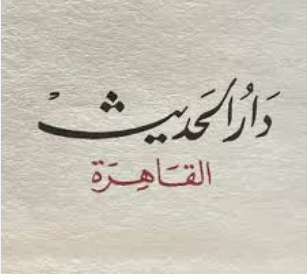 دَارُ الحَديث
القَاهِرَة